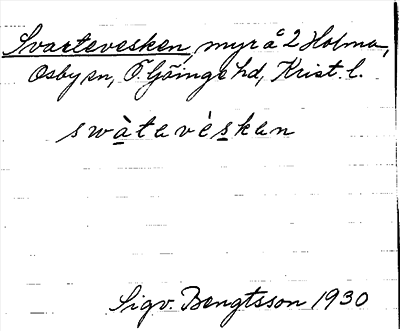 Svartevesken, myr å 2 Holma,
Osby sn, Ö. Göinge hd, Krist. l.
swàtavèskan
Sigv. Bengtsson 1930